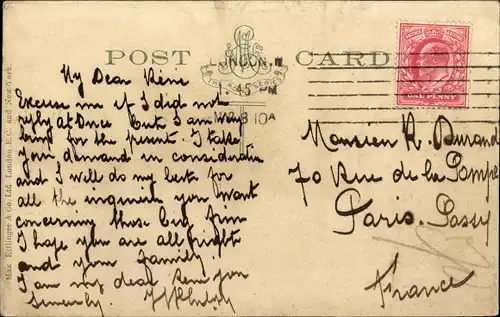 POST CARD
LONDON. W
.45 PM
MR 8 10A
ONE PENNY
Max Ettlinger & Co. Ltd. London. E.C. and New York.
My Dear Réné
Excuse me if I did not
reply at once but I am very
busy for the present. I take
your demand in consideration
and I will do my best for
all the you want
concerning those big firm
I hope you are all right
and your family
I am my dear Rene you
sincerly
Monsieur R. Durand
70 Rue de la Pompe
Paris. Passy
France